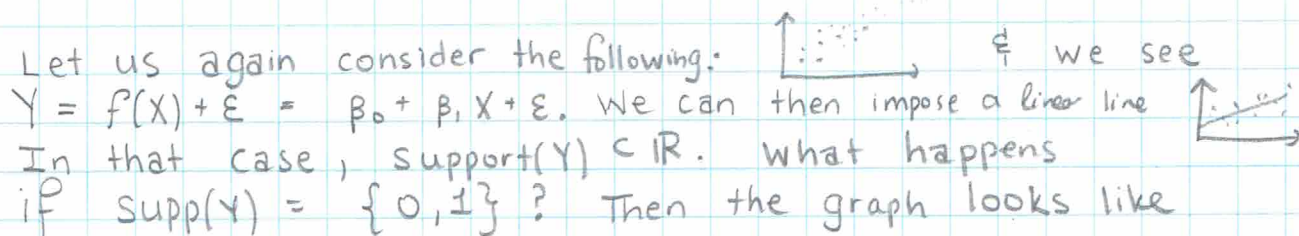 Let us again consider the following: & we see
Y = f(X) + ε = β₀ + β₁ X + ε. We can then impose a linear line
In that case, support(Y) ⊂ ℝ. What happens
if supp(Y) = {0,1}? Then the graph looks like